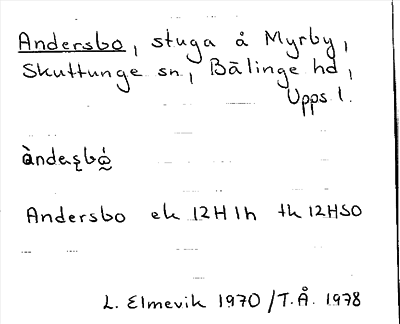 Andersbo, stuga å Myrby,
Skuttunge sn, Bälinge hd,
Upps. l.
Andersbo ek 12H1h tk 12HSO
L. Elmevik 1970 / T.Å. 1978